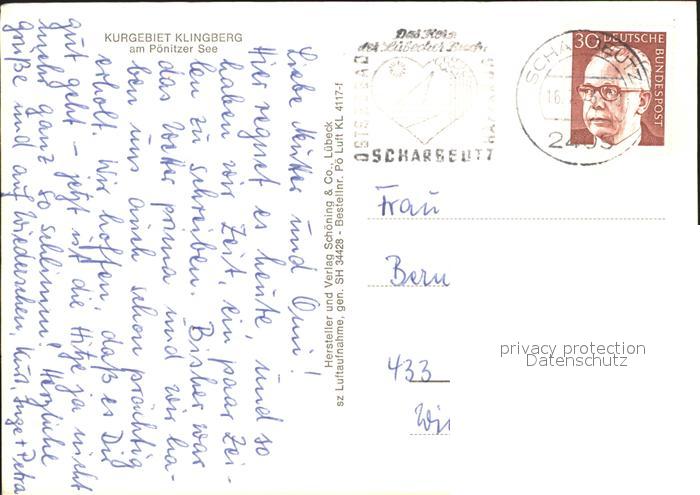 KURGEBIET KLINGBERG
am Pönitzer See
Liebe Mutter und Omi!
Hier regnet es heute, und so
haben wir Zeit, ein paar Zei-
len zu schreiben. Bisher war
das Wetter prima und wir ha-
ben uns auch schon prächtig
erholt. Wir hoffen, daß es Dir
gut geht - jetzt ist die Hitze ja nicht
mehr ganz so schlimm! Herzliche
Grüße und auf Wiedersehen, Kurt, Inge + Petra
Hersteller und Verlag Schöning & Co., Lübeck
sz Luftaufnahme, gen. SH 34428 - Bestellnr. Pö Luft KL 4117-f
Das Herz
der Lübecker Bucht
OSTSEEBAD
SCHARBEUTZ
SCHARBEUTZ
16.
2409
30
DEUTSCHE
BUNDESPOST
Frau
Bern
433
privacy protection
Datenschutz